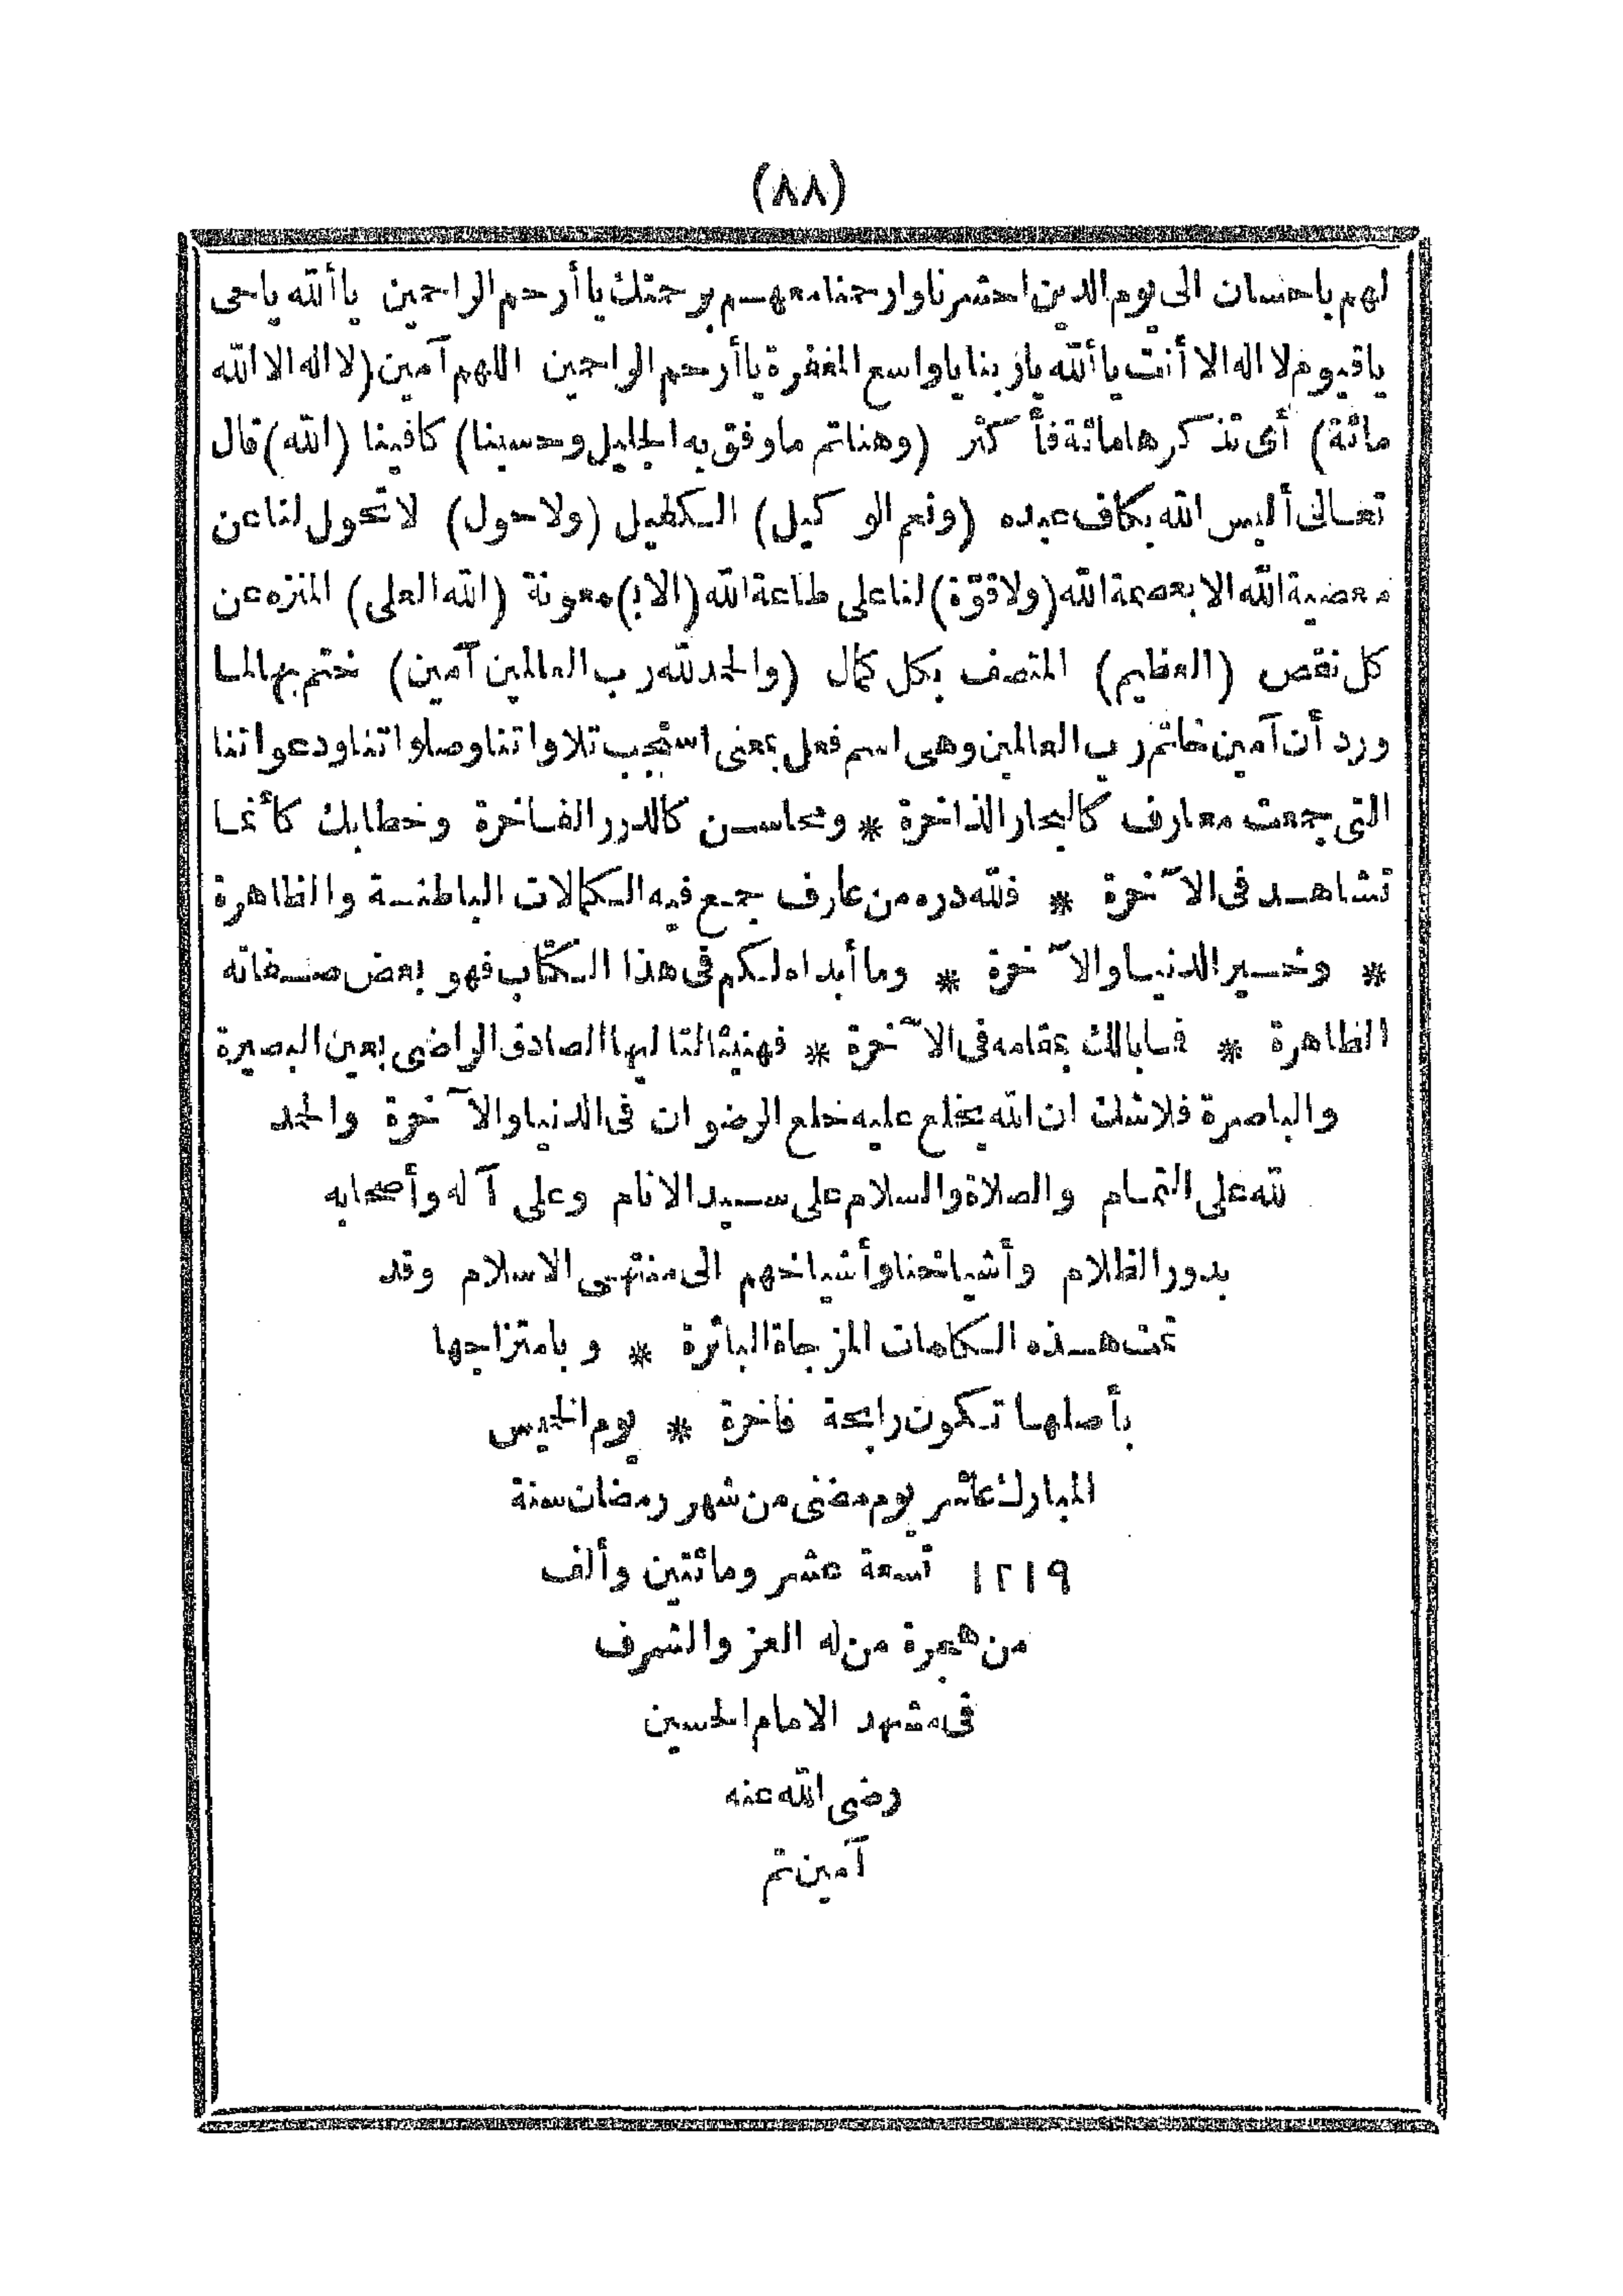 (٨٨)
لهم باحسان الى يوم الدين احشرنا وارحمنا معهم برحمتك يا أرحم الراحمين يا ألله يا حى
يا قيوم لا اله الا أنت يا ألله يا ربنا يا واسع المغفرة يا أرحم الراحمين اللهم آمين (لا اله الا الله
مائة) أى تذكرها مائة فأكثر (وهنا تم ما وفق به الجليل وحسبنا) كافينا (الله) قال
تعالى أليس الله بكاف عبده (ونعم الوكيل) الكفيل (ولا حول) لا تحول لنا عن
معصية الله الا بعصمة الله (ولا قوّة) لنا على طاعة الله (الا ب) معونة (الله العلى) المنزه عن
كل نقص (العظيم) المتصف بكل كمال (والحمد لله رب العالمين آمين) ختم بها لما
ورد أن آمين خاتم رب العالمين وهى اسم فعل بمعنى استجب تلاواتنا وصلواتنا ودعواتنا
التى جمعت معارف كالبحار الذاخرة * ومحاسن كالدرر الفاخرة وخطابك كأنما
تشاهد فى الآخرة * فلله دره من عارف جمع فيه الكمالات الباطنة والظاهرة
* وخير الدنيا والآخرة * وما أبداه لكم فى هذا الكتاب فهو بعض صفاته
الظاهرة * فما بالك بمقامه فى الآخرة * فهنيئا لتاليها الصادق الراضى بعين البصيرة
والباصرة فلا شك ان الله يخلع عليه خلع الرضوان فى الدنيا والآخرة والحمد
لله على التمام والصلاة والسلام على سيد الانام وعلى آله وأصحابه
بدور الظلام وأشياخنا وأشياخهم الى منتهى الاسلام وقد
تمت هذه الكلمات المزجاة البائرة * وبامتزاجها
بأصلها تكون رابحة فاخرة * يوم الخميس
المبارك عاشر يوم مضى من شهر رمضان سنة
١٢١٩ تسعة عشر ومائتين وألف
من هجرة من له العز والشرف
فى مشهد الامام الحسين
رضى الله عنه
آمين تم